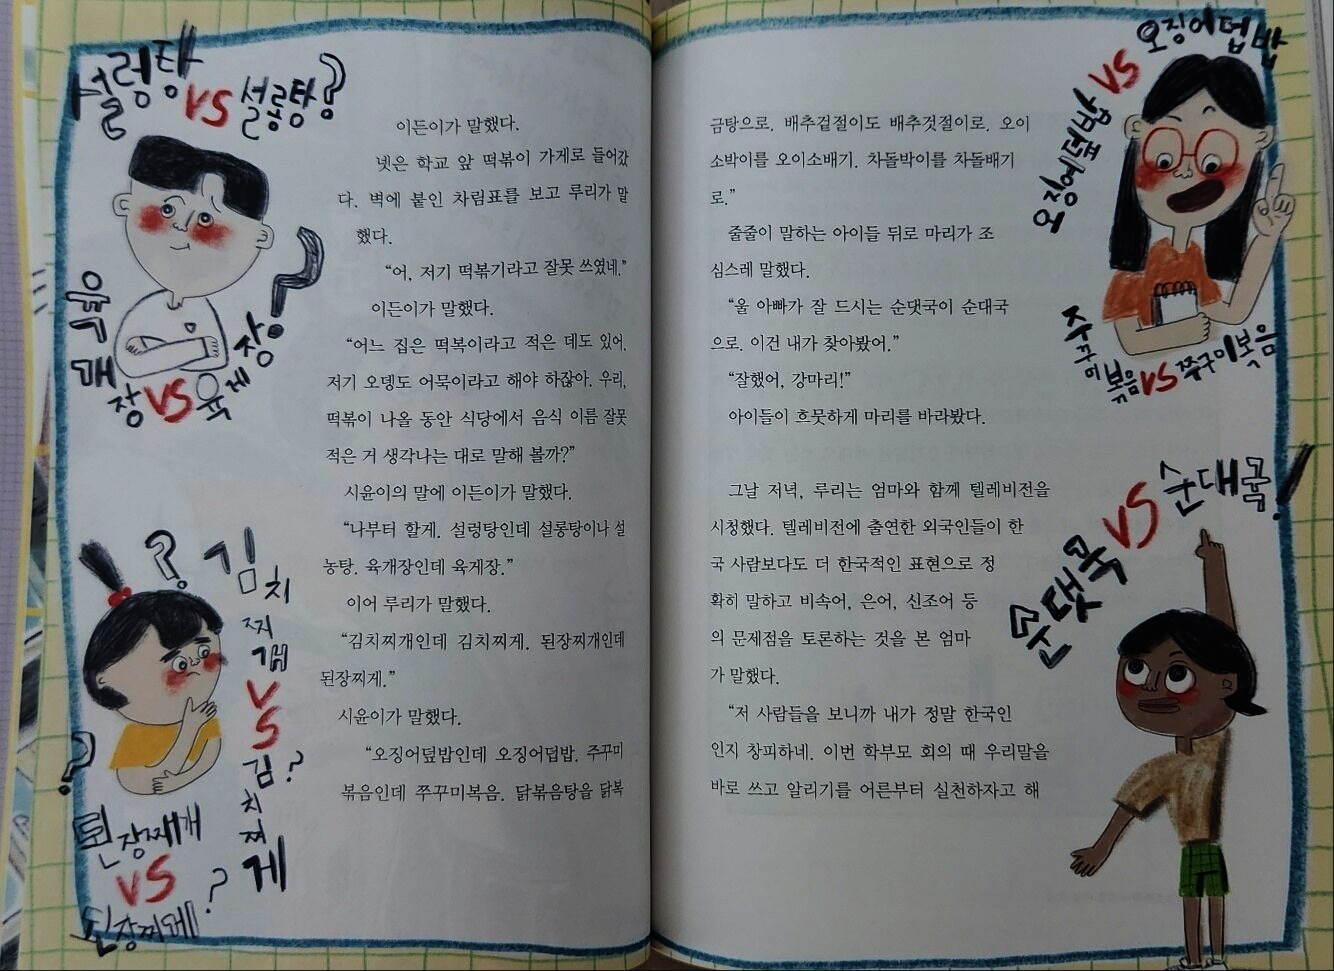 설렁탕
VS 설롱탕?
육
개
장 VS 육
게
장?
? 김
치
찌
개
VS
김?
치
찌
게
?
된장찌개
VS
된장찌게?
이든이가 말했다.
넷은 학교 앞 떡볶이 가게로 들어갔
다. 벽에 붙인 차림표를 보고 루리가 말
했다.
“어, 저기 떡볶기라고 잘못 쓰였네.”
이든이가 말했다.
“어느 집은 떡복이라고 적은 데도 있어.
저기 오뎅도 어묵이라고 해야 하잖아. 우리,
떡볶이 나올 동안 식당에서 음식 이름 잘못
적은 거 생각나는 대로 말해 볼까?”
시윤이의 말에 이든이가 말했다.
“나부터 할게. 설렁탕인데 설롱탕이나 설
농탕. 육개장인데 육게장.”
이어 루리가 말했다.
“김치찌개인데 김치찌게. 된장찌개인데
된장찌게.”
시윤이가 말했다.
“오징어덮밥인데 오징어덥밥. 주꾸미
볶음인데 쭈꾸미복음. 닭볶음탕을 닭복
금탕으로. 배추겉절이도 배추것절이로. 오이
소박이를 오이소배기. 차돌박이를 차돌배기
로.”
줄줄이 말하는 아이들 뒤로 마리가 조
심스레 말했다.
“울 아빠가 잘 드시는 순댓국이 순대국
으로. 이건 내가 찾아봤어.”
“잘했어, 강마리!”
아이들이 흐뭇하게 마리를 바라봤다.
그날 저녁, 루리는 엄마와 함께 텔레비전을
시청했다. 텔레비전에 출연한 외국인들이 한
국 사람보다도 더 한국적인 표현으로 정
확히 말하고 비속어, 은어, 신조어 등
의 문제점을 토론하는 것을 본 엄마
가 말했다.
“저 사람들을 보니까 내가 정말 한국인
인지 창피하네. 이번 학부모 회의 때 우리말을
바로 쓰고 알리기를 어른부터 실천하자고 해
오징어덮밥 VS 오징어덥밥
주꾸미볶음 VS 쭈구미복음
순댓국 VS 순대국!